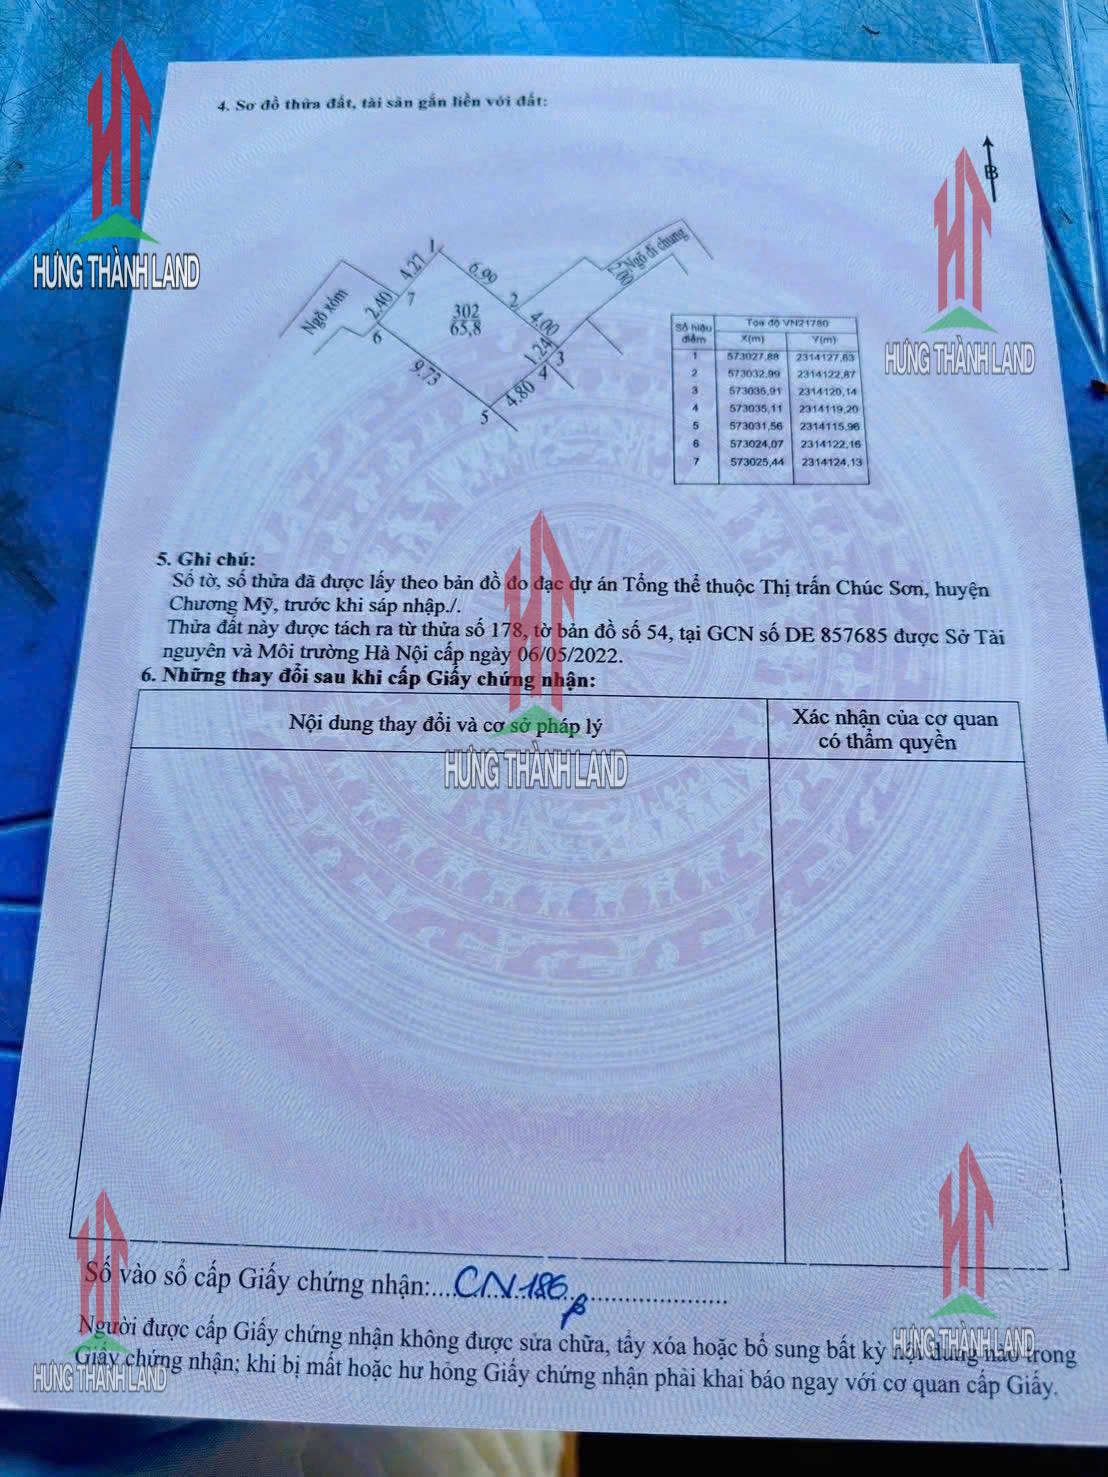 4. Sơ đồ thửa đất, tài sản gắn liền với đất:
B
HƯNG THÀNH LAND
HƯNG THÀNH LAND
Ngõ xóm
Ngõ đi chung
2.00
1
4.27
6.99
7
2.40
6
302
65,8
2
4.00
1.24
3
4
9.73
4.80
5
Số hiệu điểm Tọa độ VN21780
X(m) Y(m)
1 573027,88 2314127,63
2 573032,99 2314122,87
3 573035,91 2314120,14
4 573035,11 2314119,20
5 573031,56 2314115,96
6 573024,07 2314122,16
7 573025,44 2314124,13
5. Ghi chú:
Số tờ, số thửa đã được lấy theo bản đồ đo đạc dự án Tổng thể thuộc Thị trấn Chúc Sơn, huyện
Chương Mỹ, trước khi sáp nhập./.
Thửa đất này được tách ra từ thửa số 178, tờ bản đồ số 54, tại GCN số DE 857685 được Sở Tài
nguyên và Môi trường Hà Nội cấp ngày 06/05/2022.
6. Những thay đổi sau khi cấp Giấy chứng nhận:
Nội dung thay đổi và cơ sở pháp lý
Xác nhận của cơ quan
có thẩm quyền
HƯNG THÀNH LAND
Số vào sổ cấp Giấy chứng nhận: CN 186
Người được cấp Giấy chứng nhận không được sửa chữa, tẩy xóa hoặc bổ sung bất kỳ nội dung nào trong
Giấy chứng nhận; khi bị mất hoặc hư hỏng Giấy chứng nhận phải khai báo ngay với cơ quan cấp Giấy.
HƯNG THÀNH LAND
HƯNG THÀNH LAND